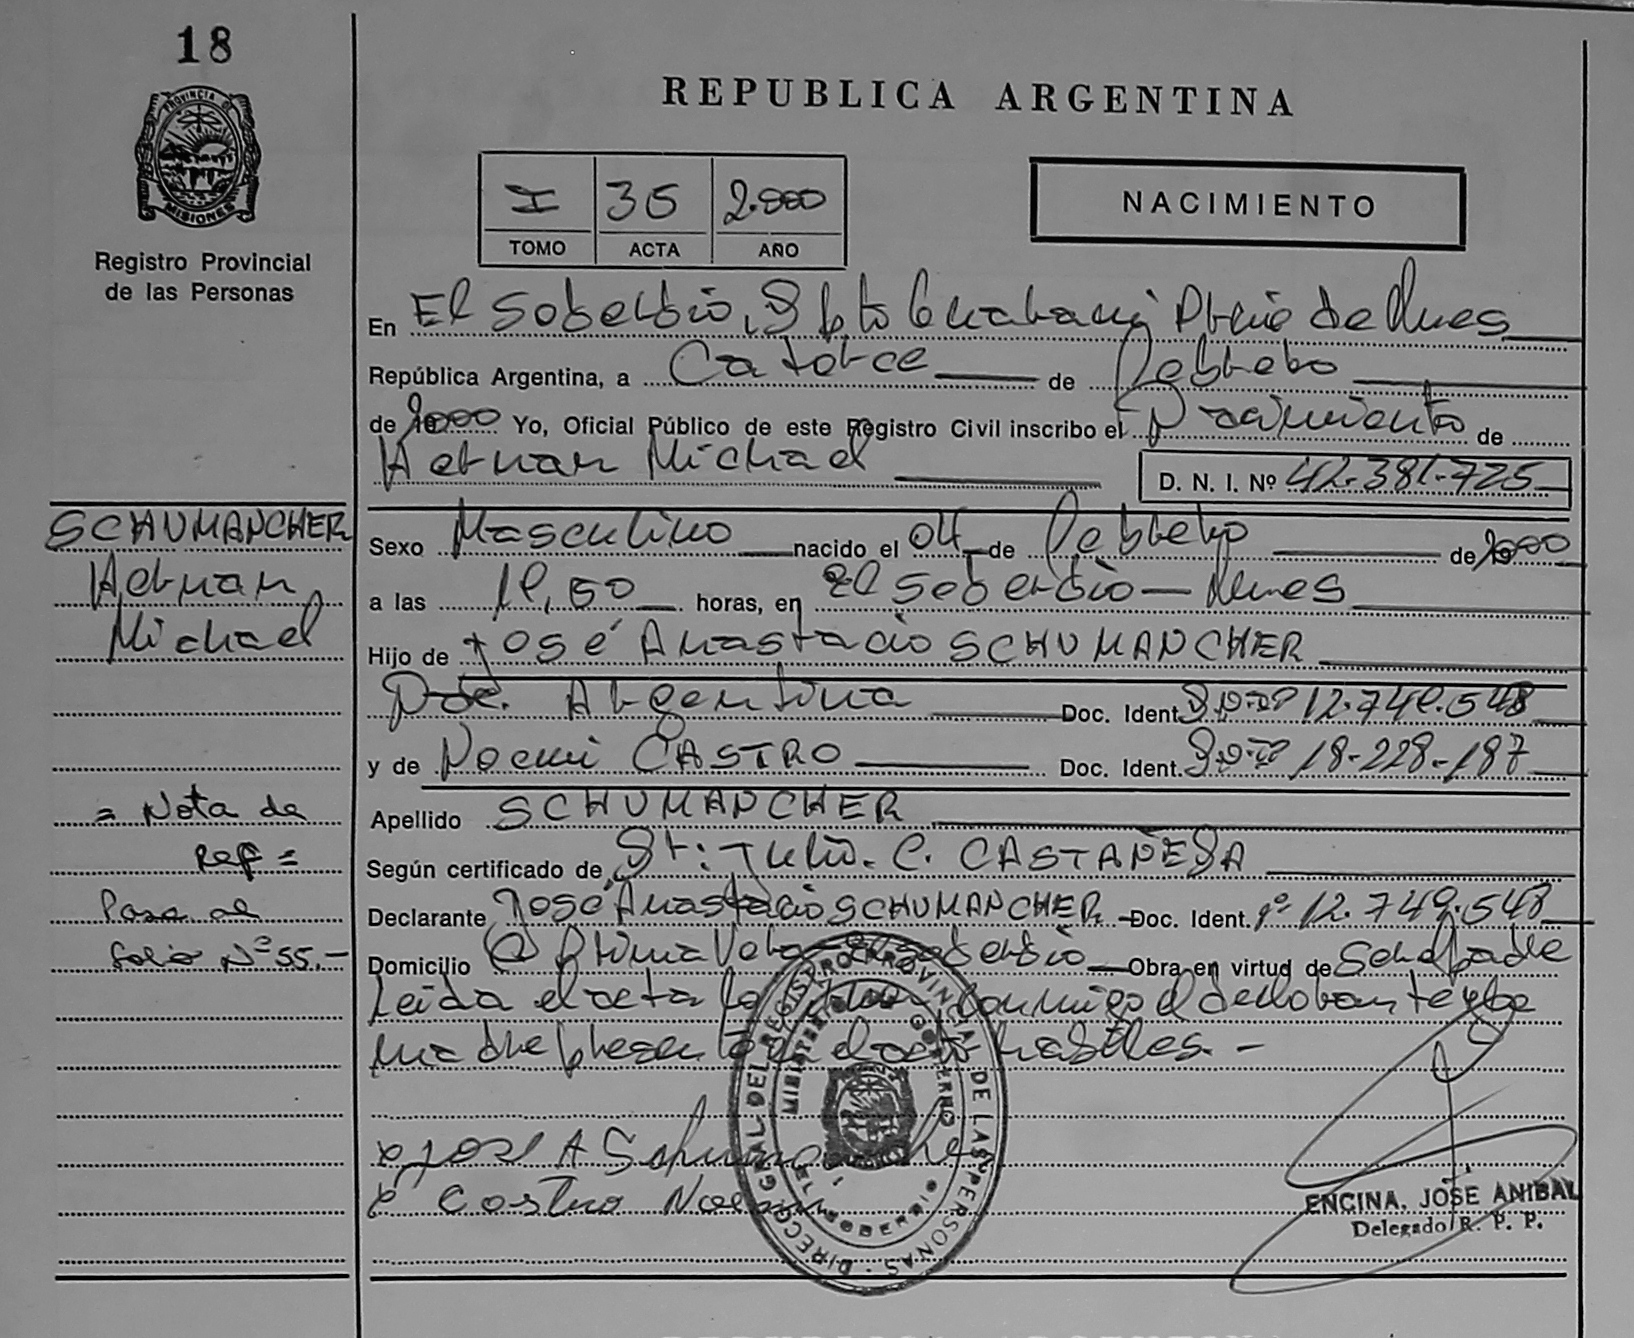 18
PROVINCIA DE
MISIONES
Registro Provincial
de las Personas
REPUBLICA ARGENTINA
I 35 2.000
TOMO ACTA AÑO
NACIMIENTO
En El Soberbio, Dpto Guarani Pbcio de Mnes
República Argentina, a Catorce de Febrero
de 2000 Yo, Oficial Público de este Registro Civil inscribo el Nacimiento de
Hernan Michael
D. N. I. Nº 42.381.725
Sexo Masculino nacido el 04 de Febrero de 2000
a las horas, en El Soberbio - Mnes
Hijo de José Anastacio SCHUMANCHER
Nac. Argentina Doc. Ident. 12.749.548
y de Noemi CASTRO Doc. Ident. 18-228-187
Apellido SCHUMANCHER
Según certificado de Dr: Julio. C. CASTAÑEDA
Declarante José Anastacio SCHUMANCHER Doc. Ident. 12.749.548
Domicilio Primavera El Soberbio Obra en virtud de Ser el padre
Leida el acta la conmigo el declarante y la
madre presente en el acto
José A Schumancher
Castro Noemi
SCHUMANCHER
Hernan
Michael
= Nota de
Ref =
Pasa al
folio Nº 55.-
DIRECC. GRAL DEL REGISTRO PROVINCIAL DE LAS PERSONAS
MINISTERIO GOBIERNO
EL SOBERBIO
ENCINA, JOSE ANIBAL
Delegado R. P. P.